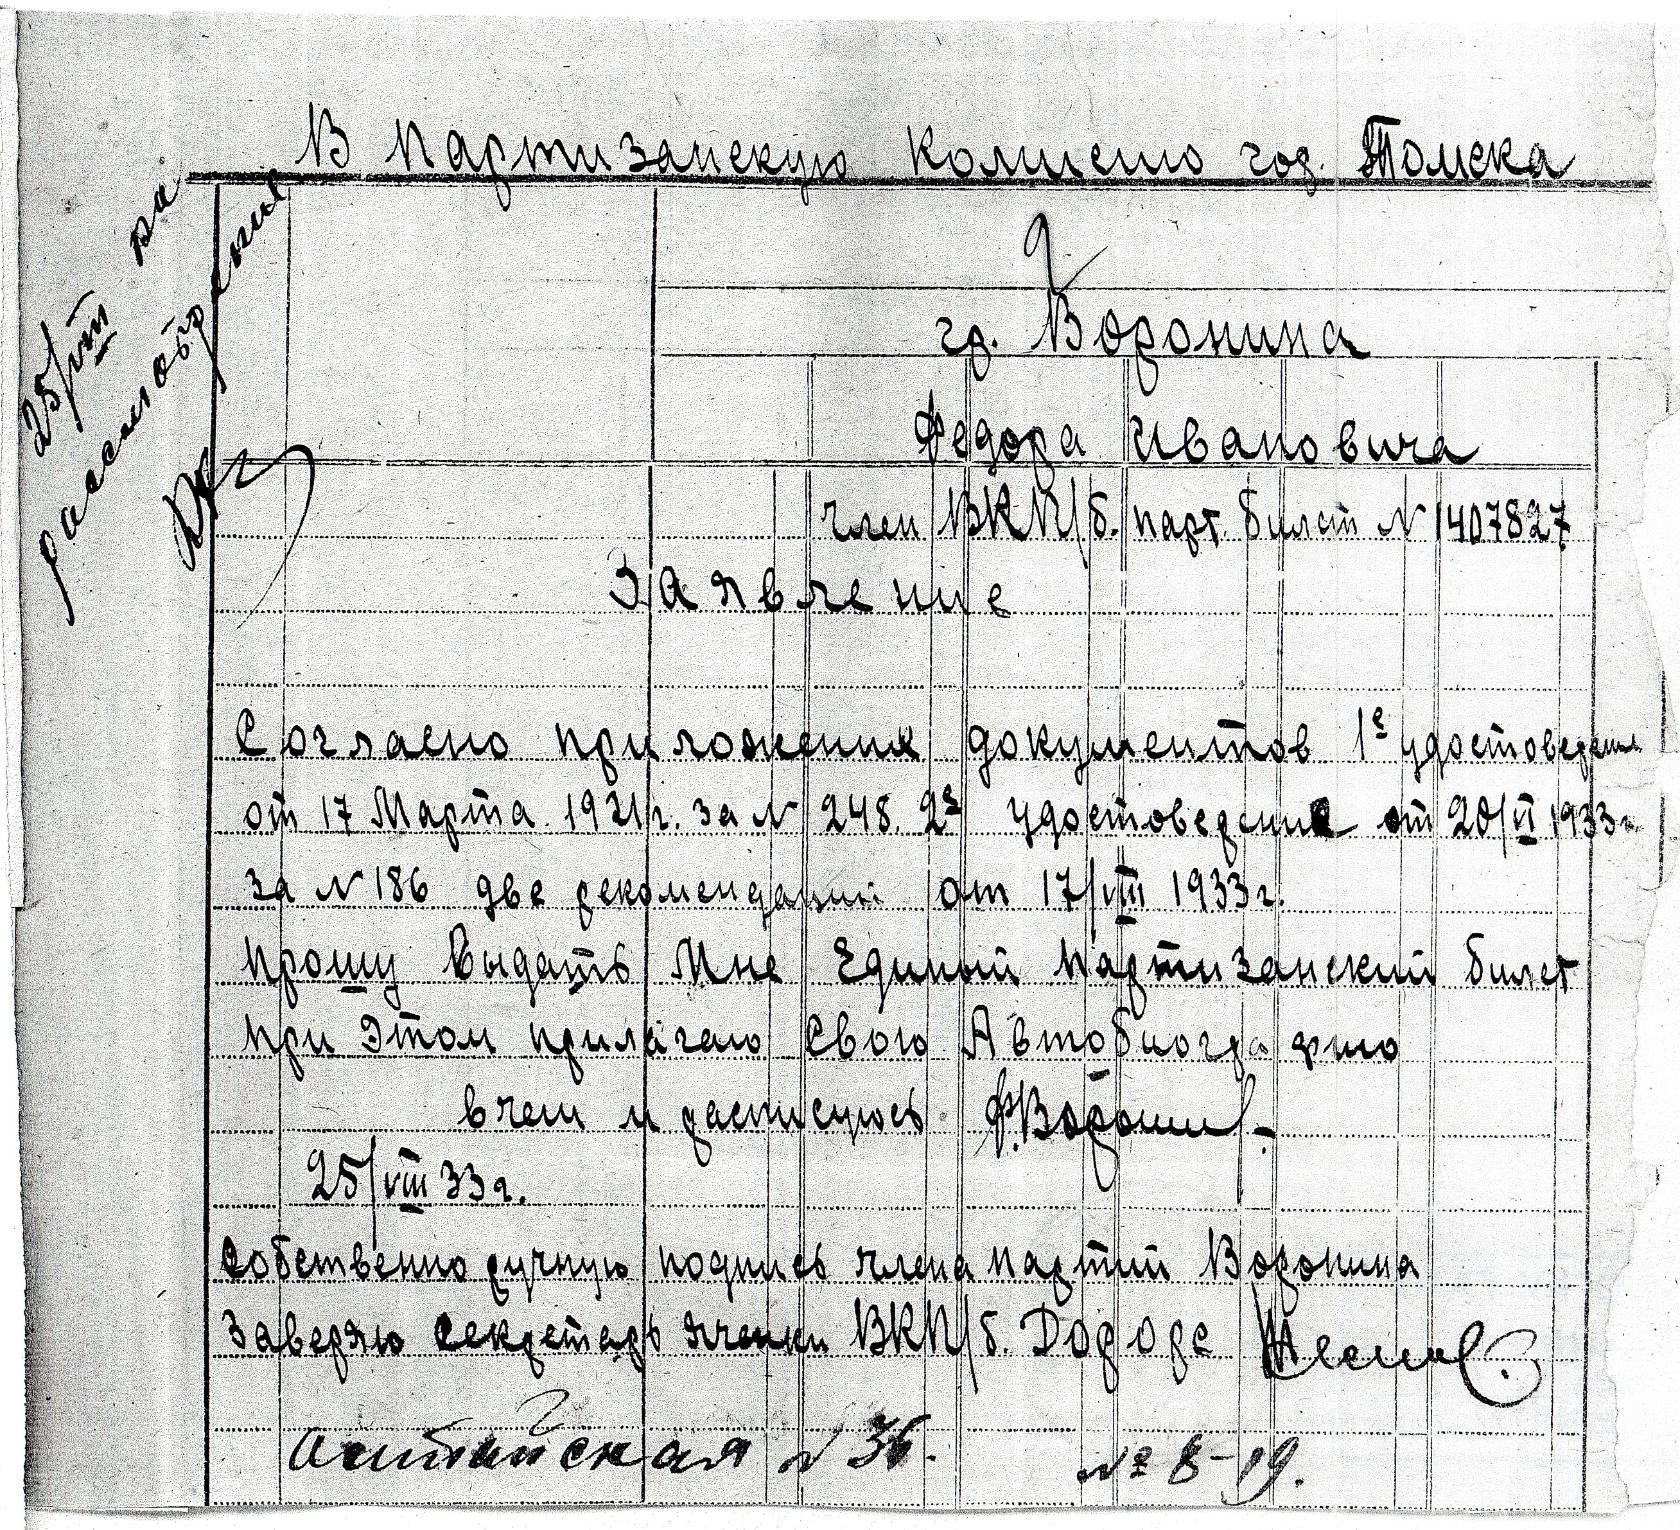 В Партизанскую Комисию гор. Томска
25/VIII на
рассмотрение
гр. Воронина
Федора Ивановича
член ВКП/б. парт. билет N 1407827
Заявление
Согласно приложения документов 1е удостоверения
от 17 Марта 1921г. за N 248. 2е удостоверения от 20/VI 1933г
за N 186 две рекомендации от 17/VIII 1933г.
прошу выдать мне Единый Партизанский билет
при этом прилагаю свою Автобиографию
в чем и распишусь Ф.Воронин.-
25/VIII 33г.
Собственно ручную подпись члена партии Воронина
Заверяю секретарь ячейки ВКП/б.
N 36. № 8-19.